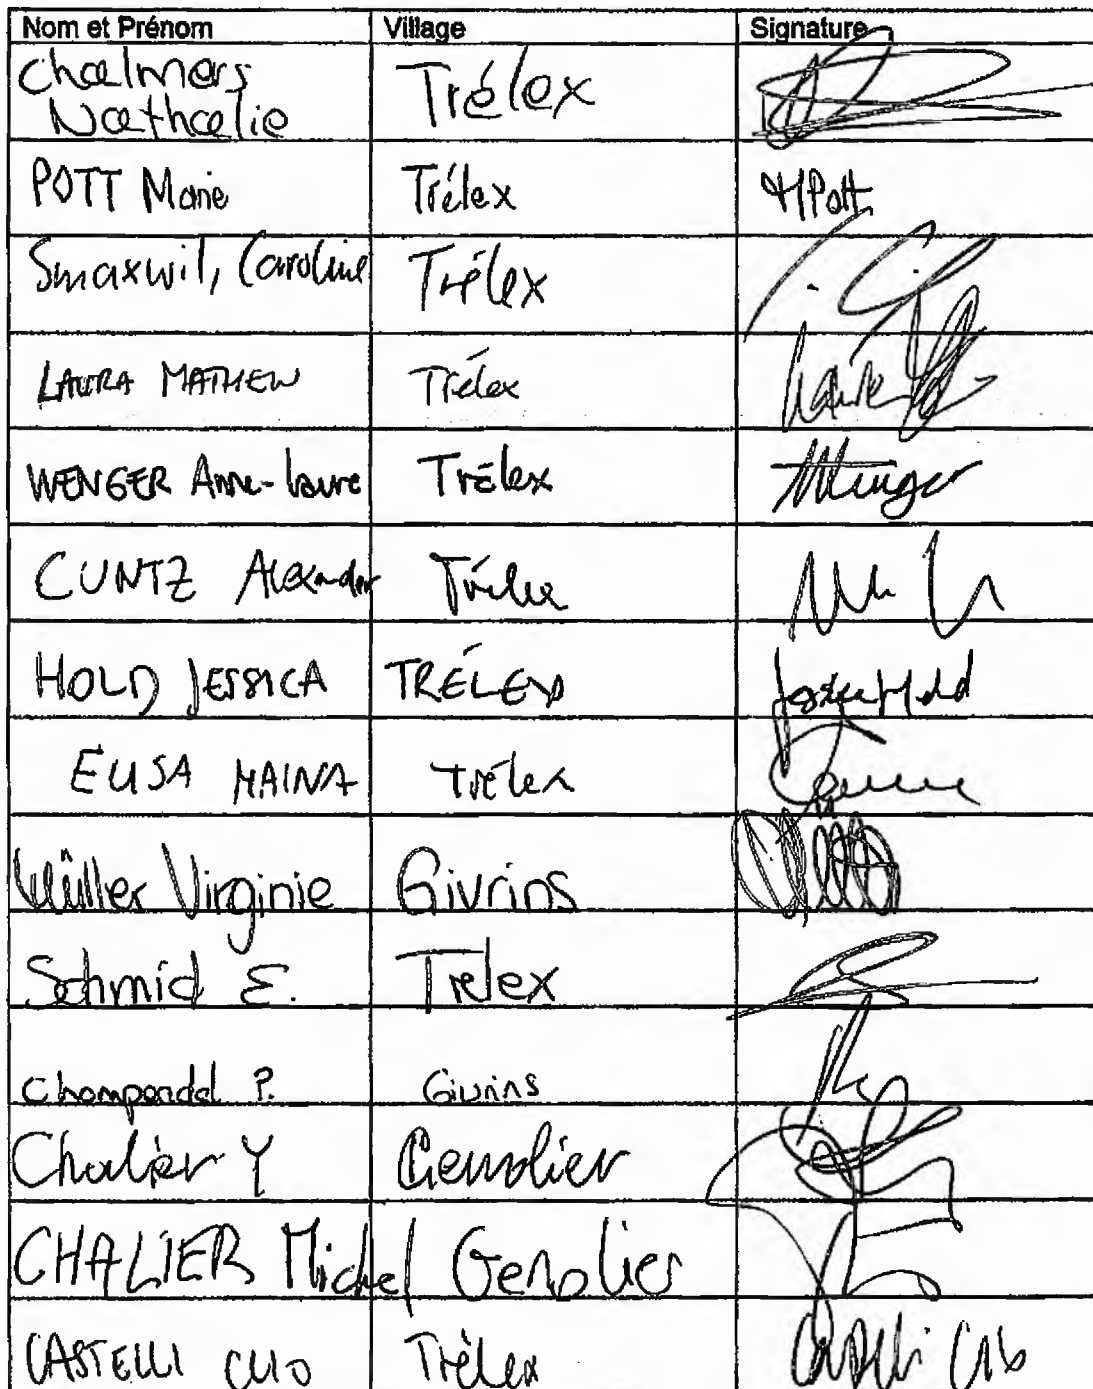 Nom et Prénom Village Signature
Chalmers
Nathalie Trélex
POTT Marie Trélex MPott
Smaxwil, Caroline Trélex
LAURA MATHEW Trélex
WENGER Anne-Laure Trélex AWenger
CUNTZ Alexander Trélex
HOLD JESSICA TRÉLEX Jessica Hold
ELISA MAINA Trélex
Müller Virginie Givrins
Schmid E. Trelex
Champendal P. Givrins
Chalier Y Genolier
CHALIER Michel Genolier
CASTELLI CLIO Trélex Castelli Clio